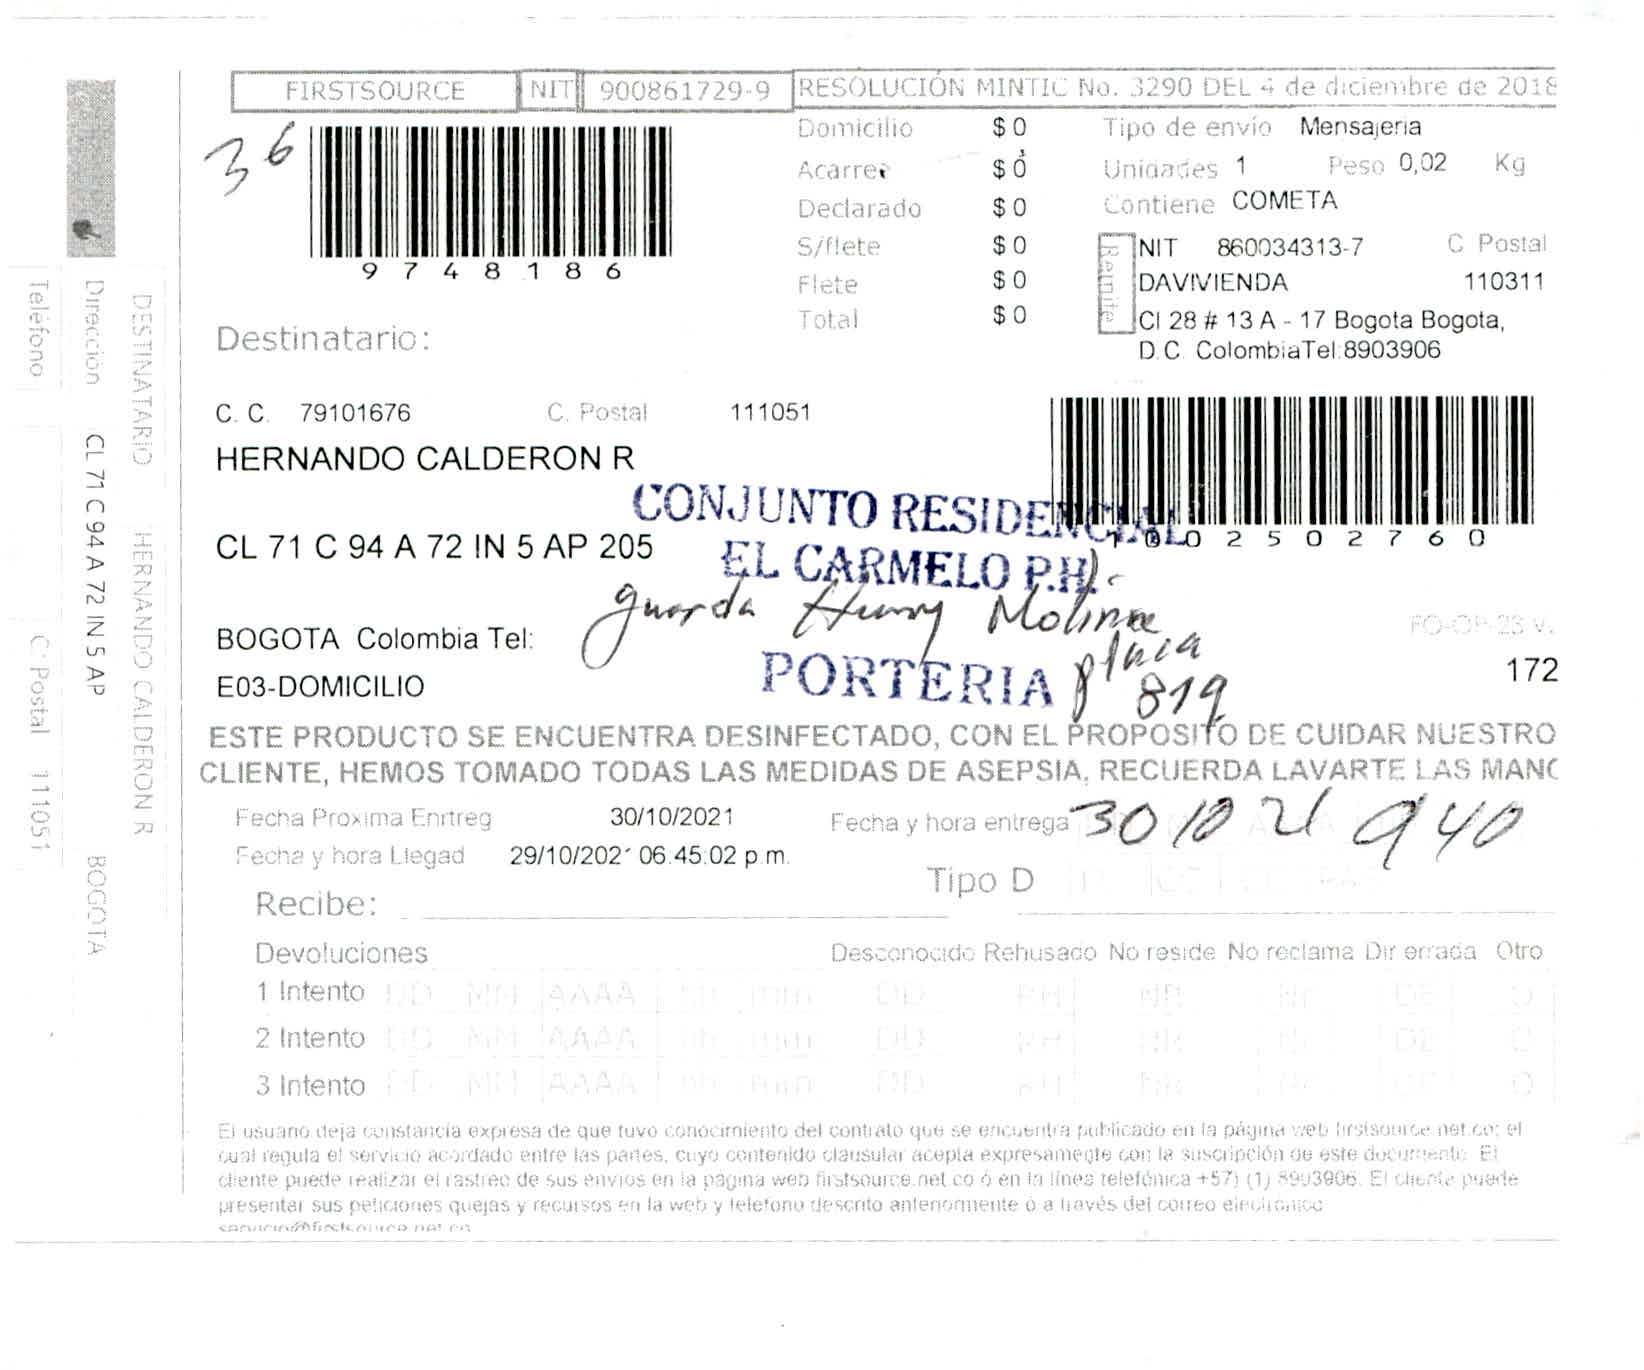 FIRSTSOURCE NIT 900861729-9 RESOLUCIÓN MINTIC No. 3290 DEL 4 de diciembre de 2018
36
9748186
Domicilio $ 0
Acarreo $ 0
Declarado $ 0
S/flete $ 0
Flete $ 0
Total $ 0
Tipo de envío Mensajeria
Unidades 1 Peso 0,02 Kg
Contiene COMETA
Remite
NIT 860034313-7 C Postal
DAVIVIENDA 110311
Cl 28 # 13 A - 17 Bogota Bogota,
D.C. ColombiaTel:8903906
Destinatario:
C. C. 79101676 C. Postal 111051
HERNANDO CALDERON R
1002502760
CL 71 C 94 A 72 IN 5 AP 205
CONJUNTO RESIDENCIAL
EL CARMELO P.H.
guarda Henry Molina
placa
819
PORTERIA
BOGOTA Colombia Tel:
E03-DOMICILIO
FO-OP-23 v.
172
ESTE PRODUCTO SE ENCUENTRA DESINFECTADO, CON EL PROPOSITO DE CUIDAR NUESTRO
CLIENTE, HEMOS TOMADO TODAS LAS MEDIDAS DE ASEPSIA, RECUERDA LAVARTE LAS MANO
Fecha Proxima Enrtreg 30/10/2021 Fecha y hora entrega 30 10 21 9 40
Fecha y hora Llegad 29/10/2021 06:45:02 p.m.
Tipo D
Recibe:
Devoluciones Desconocido Rehusado No reside No reclama Dir errada Otro
1 Intento DD MM AAAA hh mm DD RH NR Nr DE O
2 Intento DD MM AAAA hh mm DD RH NR Nr DE O
3 Intento DD MM AAAA hh mm DD RH NR Nr DE O
El usuario deja constancia expresa de que tuvo conocimiento del contrato que se encuentra publicado en la página web firstsource.net.co; el
cual regula el servicio acordado entre las partes, cuyo contenido clausular acepta expresamente con la suscripción de este documento. El
cliente puede realizar el rastreo de sus envios en la página web firstsource.net.co ó en la línea telefónica +57) (1) 8903906. El cliente puede
presentar sus peticiones quejas y recursos en la web y telefono descrito anteriormente o a través del correo electronico
servicio@firstsource.net.co
DESTINATARIO HERNANDO CALDERON R
Dirección CL 71 C 94 A 72 IN 5 AP BOGOTA
Teléfono C. Postal 111051